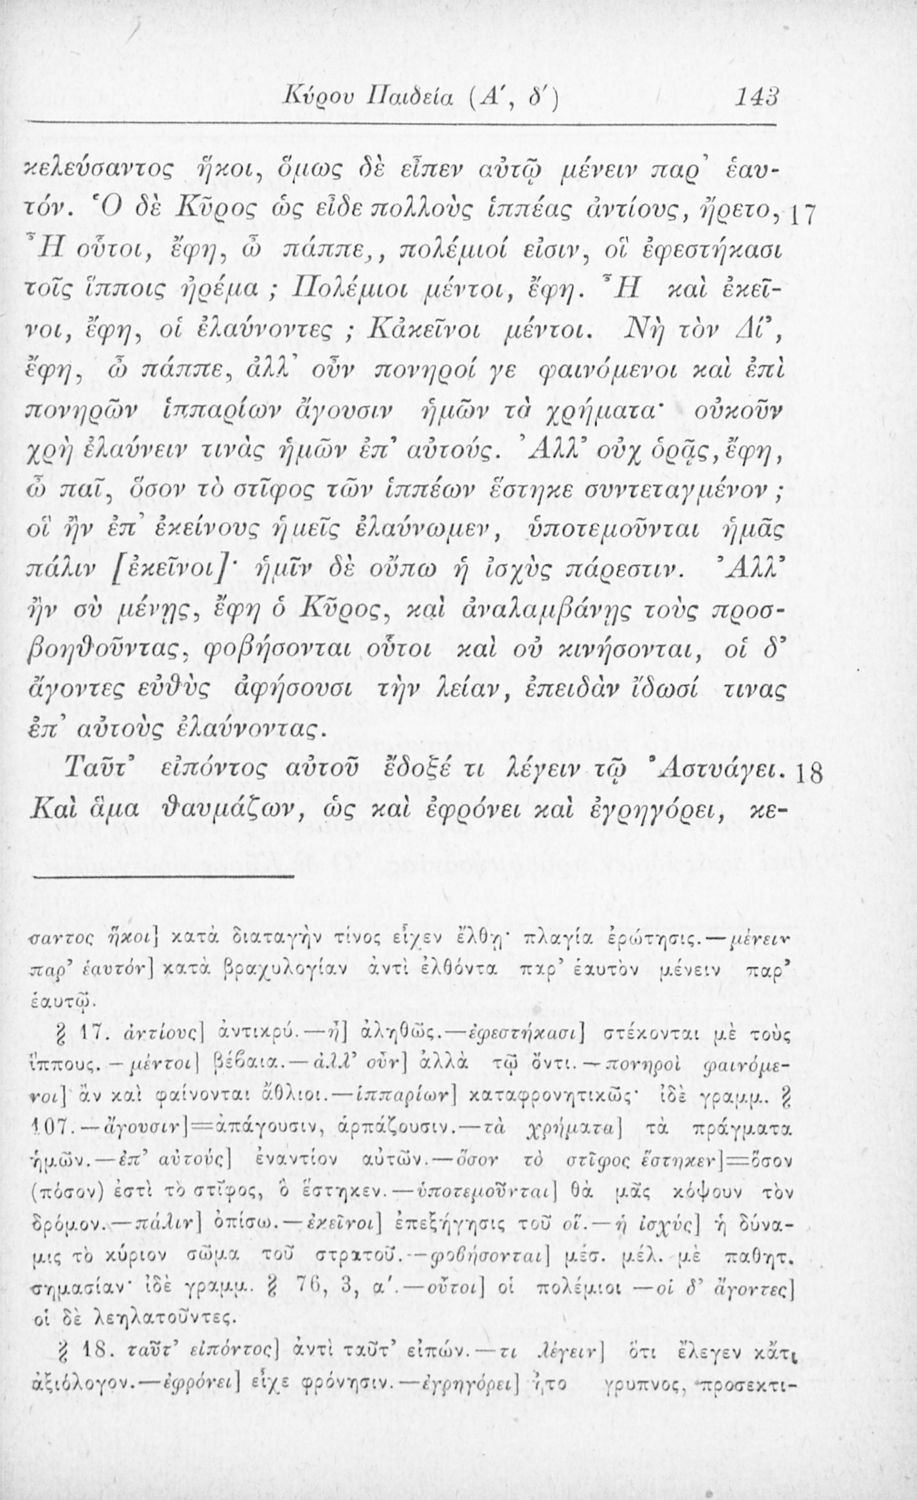 Κύρου Παιδεία (Α΄, δ΄) 143
κελεύσαντος ἥκοι, ὅμως δὲ εἶπεν αὐτῷ μένειν παρ᾽ ἑαυ-
τόν. Ὁ δὲ Κῦρος ὡς εἶδε πολλοὺς ἱππέας ἀντίους, ἤρετο, 17
Ἦ οὗτοι, ἔφη, ὦ πάππε,, πολέμιοί εἰσιν, οἳ ἐφεστήκασι
τοῖς ἵπποις ἠρέμα ; Πολέμιοι μέντοι, ἔφη. Ἦ καὶ ἐκεῖ-
νοι, ἔφη, οἱ ἐλαύνοντες ; Κἀκεῖνοι μέντοι. Νὴ τὸν Δί᾽,
ἔφη, ὦ πάππε, ἀλλ᾽ οὖν πονηροί γε φαινόμενοι καὶ ἐπὶ
πονηρῶν ἱππαρίων ἄγουσιν ἡμῶν τὰ χρήματα· οὐκοῦν
χρὴ ἐλαύνειν τινὰς ἡμῶν ἐπ᾽ αὐτούς. Ἀλλ᾽ οὐχ ὁρᾷς, ἔφη,
ὦ παῖ, ὅσον τὸ στῖφος τῶν ἱππέων ἕστηκε συντεταγμένον ;
οἳ ἢν ἐπ᾽ ἐκείνους ἡμεῖς ἐλαύνωμεν, ὑποτεμοῦνται ἡμᾶς
πάλιν [ἐκεῖνοι]· ἡμῖν δὲ οὔπω ἡ ἰσχὺς πάρεστιν. Ἀλλ᾽
ἢν σὺ μένῃς, ἔφη ὁ Κῦρος, καὶ ἀναλαμβάνῃς τοὺς προσ-
βοηθοῦντας, φοβήσονται οὗτοι καὶ οὐ κινήσονται, οἱ δ᾽
ἄγοντες εὐθὺς ἀφήσουσι τὴν λείαν, ἐπειδὰν ἴδωσί τινας
ἐπ᾽ αὐτοὺς ἐλαύνοντας.
Ταῦτ᾽ εἰπόντος αὐτοῦ ἔδοξέ τι λέγειν τῷ Ἀστυάγει. 18
Καὶ ἅμα θαυμάζων, ὡς καὶ ἐφρόνει καὶ ἐγρηγόρει, κε-
σαντος ἥκοι] κατὰ διαταγὴν τίνος εἶχεν ἔλθῃ· πλαγία ἐρώτησις.—μένειν
παρ᾽ ἑαυτόν] κατὰ βραχυλογίαν ἀντὶ ἐλθόντα παρ᾽ ἑαυτὸν μένειν παρ᾽
ἑαυτῷ.
§ 17. ἀντίους] ἀντικρύ.—ἦ] ἀληθῶς.—ἐφεστήκασι] στέκονται μὲ τοὺς
ἵππους. — μέντοι] βέβαια.—ἀλλ᾽ οὖν] ἀλλὰ τῷ ὄντι. — πονηροὶ φαινόμε-
νοι] ἂν καὶ φαίνονται ἄθλιοι.—ἱππαρίων] καταφρονητικῶς· ἰδὲ γραμμ. §
107.—ἄγουσιν]=ἀπάγουσιν, ἁρπάζουσιν.—τὰ χρήματα] τὰ πράγματα
ἡμῶν.—ἐπ᾽ αὐτούς] ἐναντίον αὐτῶν.—ὅσον τὸ στῖφος ἕστηκεν]=ὅσον
(πόσον) ἐστὶ τὸ στῖφος, ὃ ἕστηκεν.—ὑποτεμοῦνται] θὰ μᾶς κόψουν τὸν
δρόμον.—πάλιν] ὀπίσω.—ἐκεῖνοι] ἐπεξήγησις τοῦ οἵ.—ἡ ἰσχύς] ἡ δύνα-
μις τὸ κύριον σῶμα τοῦ στρατοῦ.—φοβήσονται] μέσ. μέλ. μὲ παθητ.
σημασίαν· ἰδὲ γραμμ. § 76, 3, α΄.—οὗτοι] οἱ πολέμιοι —οἱ δ᾽ ἄγοντες]
οἱ δὲ λεηλατοῦντες.
§ 18. ταῦτ᾽ εἰπόντος] ἀντὶ ταῦτ᾽ εἰπών.—τι λέγειν] ὅτι ἔλεγεν κἄτι
ἀξιόλογον.—ἐφρόνει] εἶχε φρόνησιν.—ἐγρηγόρει] ἦτο γρυπνος, προσεκτι-